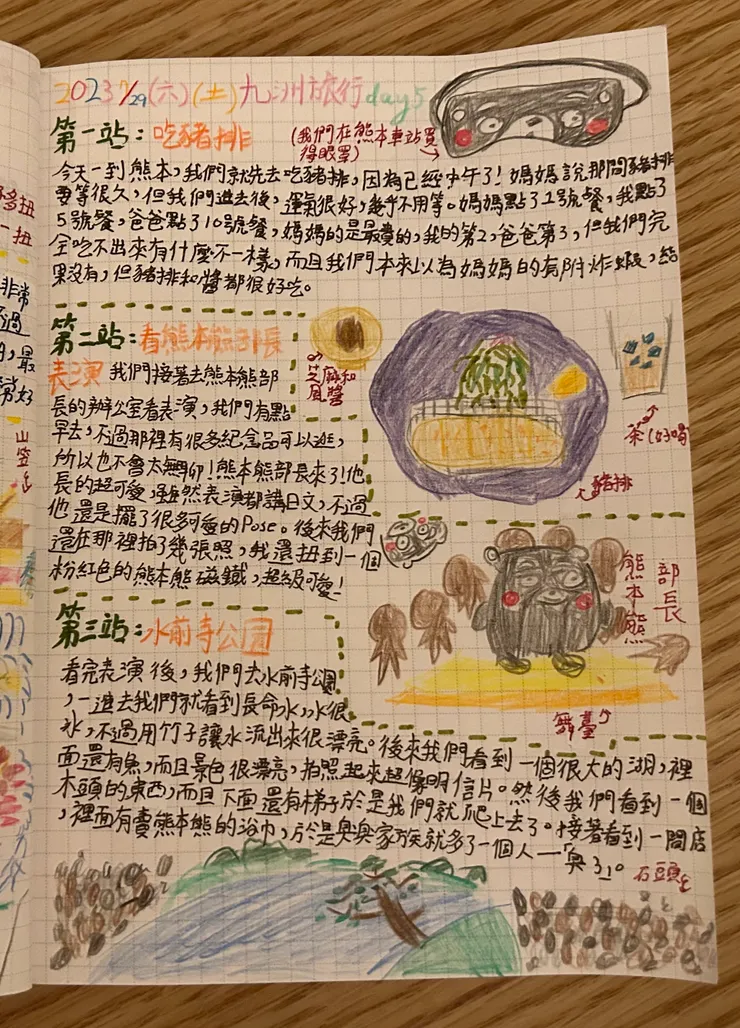 2023 7/29(六)(土)九洲旅行day5
第一站:吃豬排
(我們在熊本車站買
得眼罩)
今天一到熊本,我們就先去吃豬排,因為已經中午了!媽媽說那間豬排
要等很久,但我們進去後,運氣很好,幾乎不用等。媽媽點了1號餐,我點了
5號餐,爸爸點了10號餐,媽媽的是最貴的,我的第2,爸爸第3,但我們完
全吃不出來有什麼不一樣,而且我們本來以為媽媽的有附炸蝦,結
果沒有,但豬排和醬都很好吃。
第二站:看熊本熊部長
表演 我們接著去熊本熊部
長的辦公室看表演,我們有點
早去,不過那裡有很多紀念品可以逛,
所以也不會太無卯!熊本熊部長來了!他
長的超可愛,雖然表演都講日文,不過
他還是擺了很多可愛的Pose。後來我們
還在那裡拍了幾張照,我還扭到一個
粉紅色的熊本熊磁鐵,超級可愛!
芝麻和
風醬
茶(好喝)
豬排
部長
熊本熊
舞臺
第三站:水前寺公園
看完表演後,我們去水前寺公園
,一進去我們就看到長命水,水很
冰,不過用竹子讓水流出來很漂亮。後來我們看到一個很大的湖,裡
面還有魚,而且景色很漂亮,拍照起來超像明信片。然後我們看到一個
木頭的東西,而且下面還有梯子於是我們就爬上去了。接著看到一間店
,裡面有賣熊本熊的浴巾,於是臭臭家族就多了一個人—「臭3」。
石頭
多扭
一扭
非常
過
,最
常好
山笠